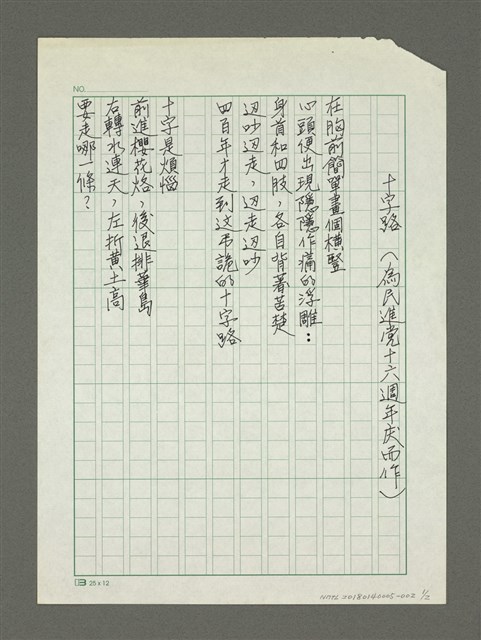 NO.
十字路（為民進党十六週年庆而作）
在胸前簡單畫個橫豎
心頭便出現隱隱作痛的浮雕：
身首和四肢，各自背著苦楚
边吵边走，边走边吵
四百年才走到这弔詭的十字路
十字是煩惱
前進櫻花烙，後退排華島
右轉水連天，左折黃土高
要走哪一條？
25 x 12
NMTL 20180140005-002 1/2